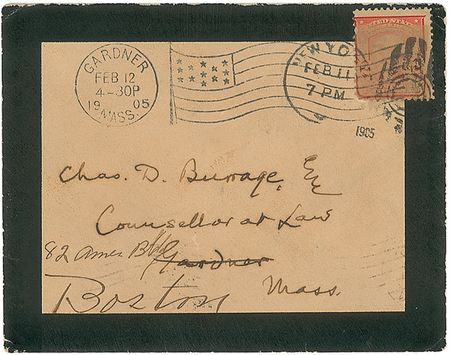 GARDNER
FEB 12
4-30P
1905
MASS.
NEW YORK
FEB 11
7 PM
1905
UNITED STATES
Chas. D. Burrage, Esq
Counsellor at Law
82 Ames Bldg Gardner
Boston Mass.